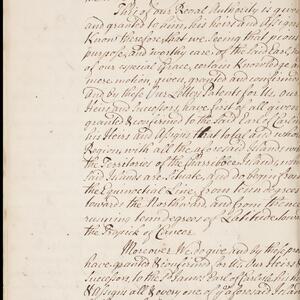 Title of our Royal Authority is given
and granted to him, his heirs and Assigns
Know therefore, that we seeing that pious
purpose, and worthy care, of the said Earl,
of our especial Grace, certain Knowledge and
meer motion, given, granted and confirmed
and by these Our Letters Patents for us, Our
Heirs and Successors, have first of all given
granted & confirmed to the said Earl of Carlisle
his Heirs and Assigns that total and whole
Region, with all the aforesaid Islands with
the Territories of the Charribee Islands, which
said Islands are Situate, and do begin from
the Equinoctial Line, from ten degrees
towards the Northward, and from thence
running ten degrees of Latitude toward
the Tropick of Cancer
Moreover We do give, and by these our
have granted & confirmed, for Us Our Heirs &
Successors, to the sd James Earl of Carlisle, his Heirs
& Assigns all & every one of ye aforesd Islands